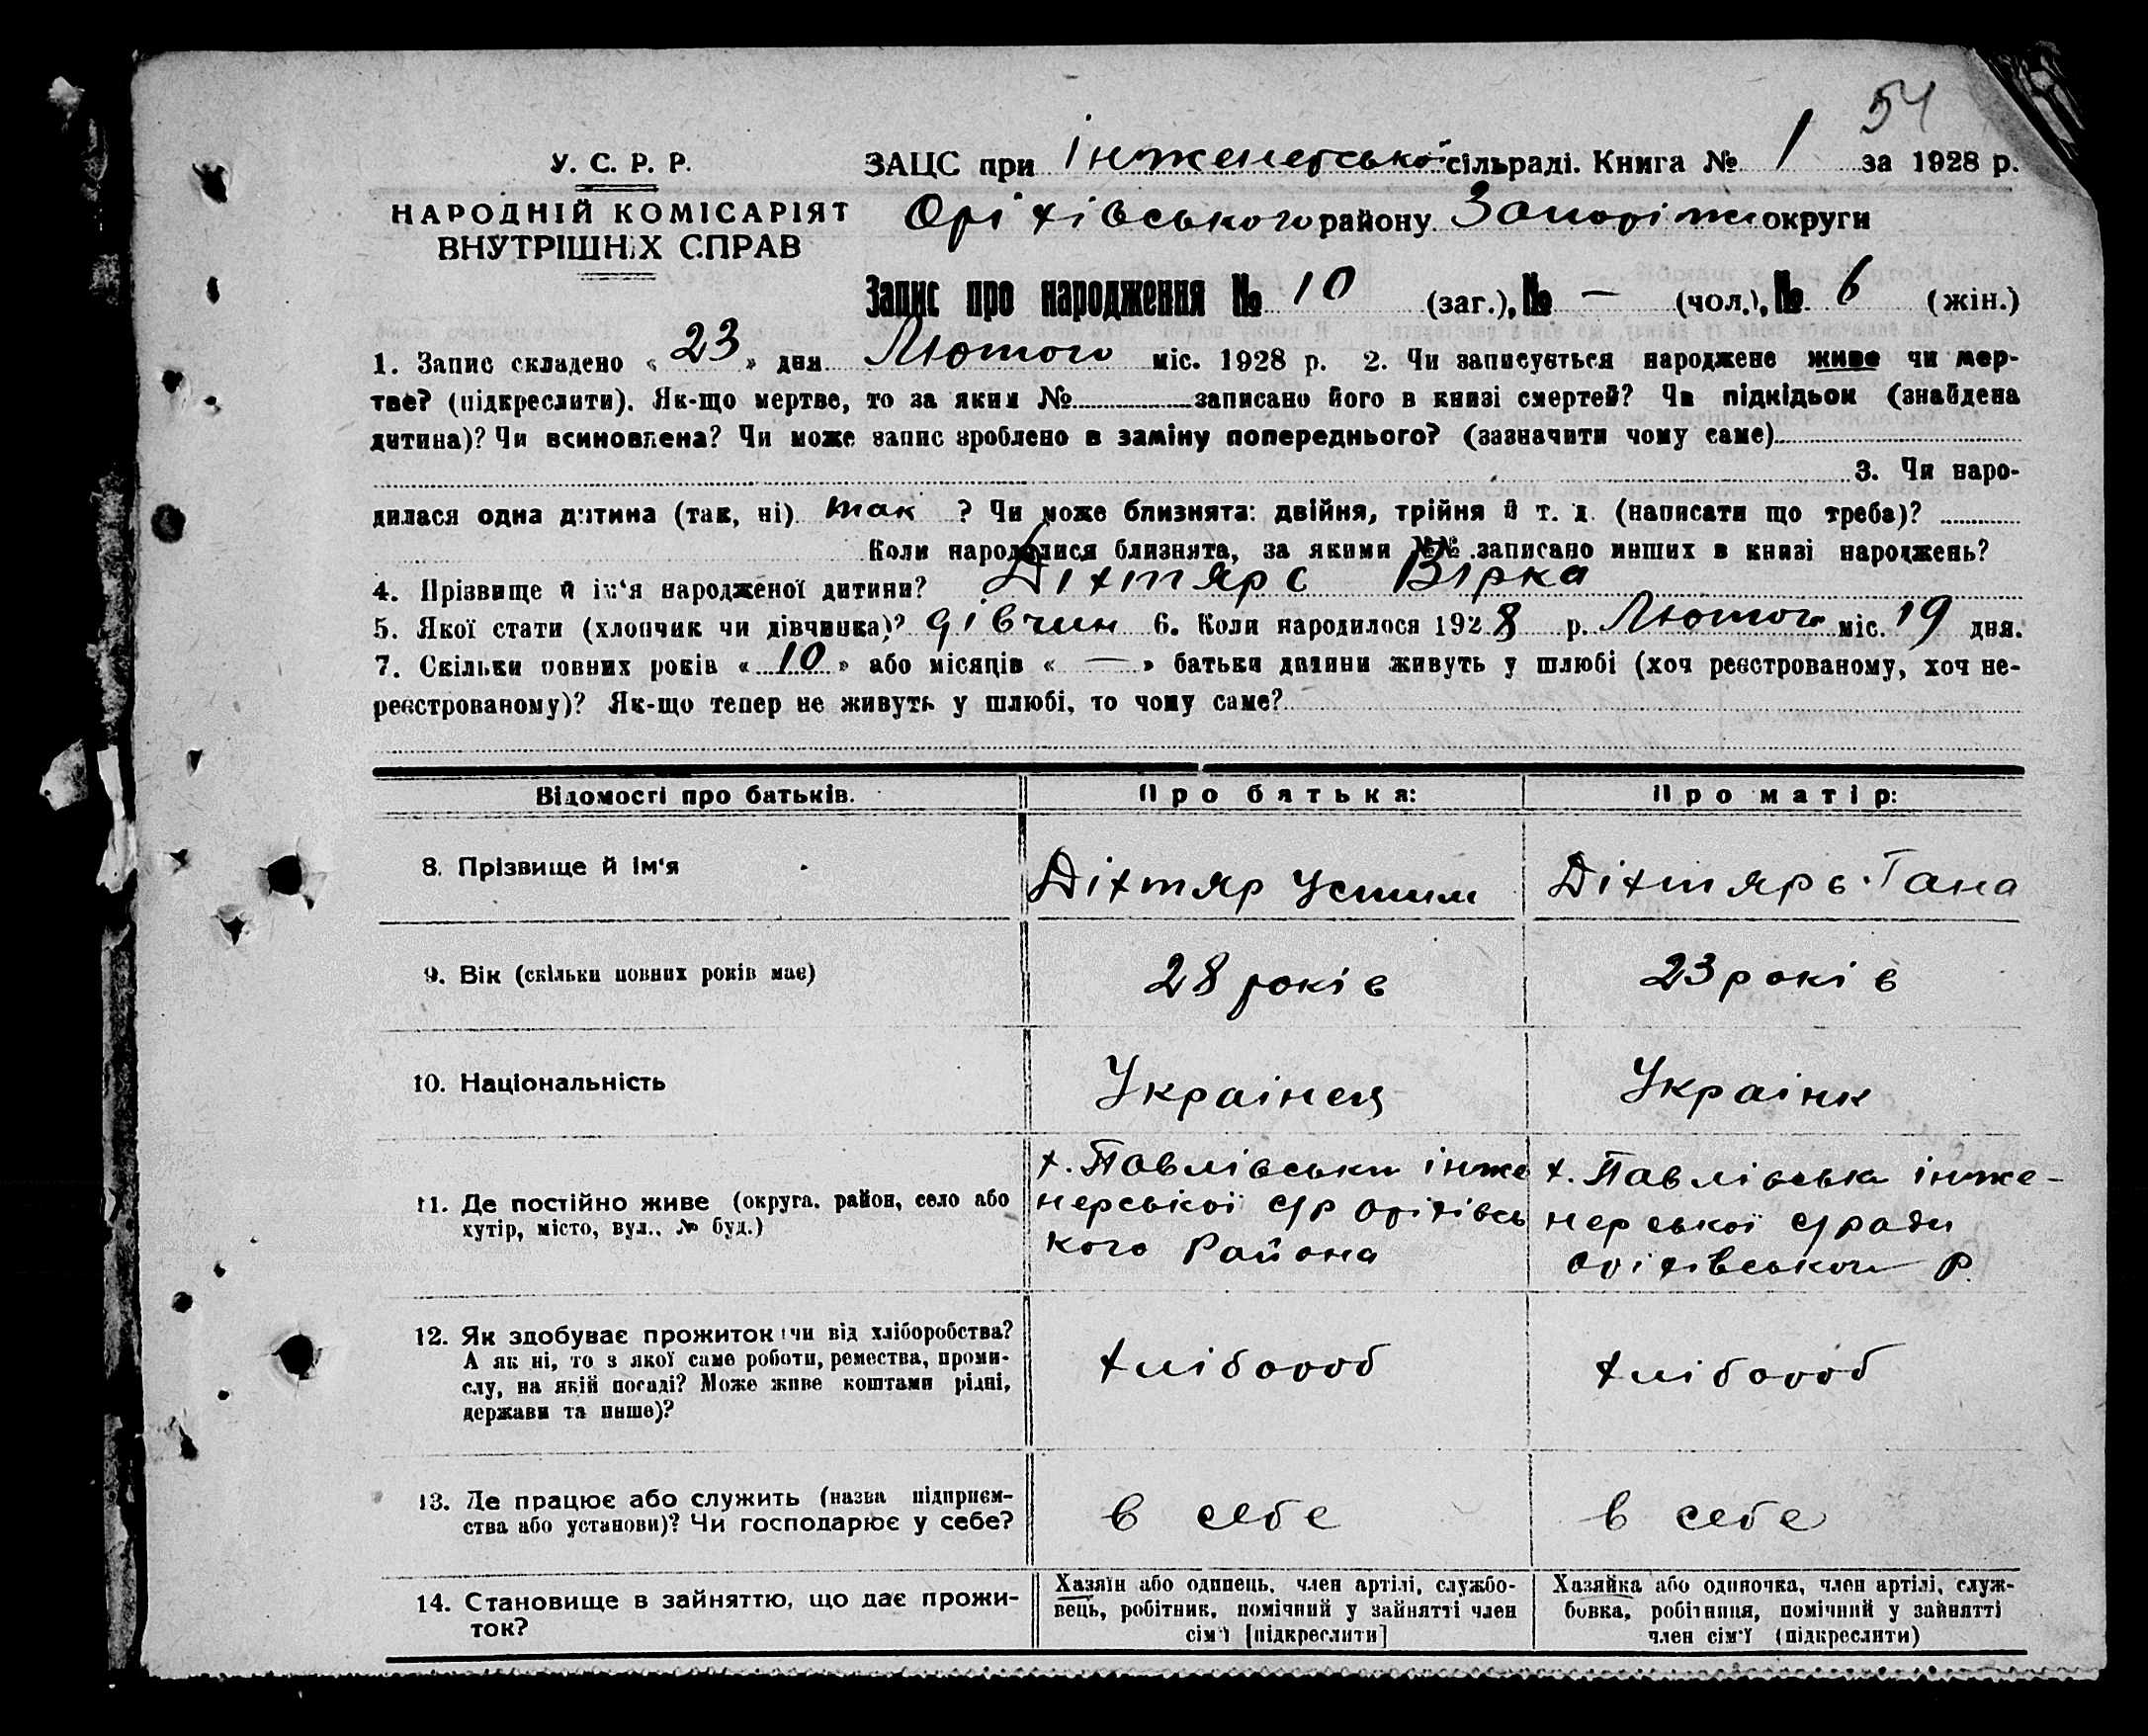 54
У. С. Р. Р.
НАРОДНІЙ КОМІСАРІЯТ
ВНУТРІШНІХ СПРАВ
ЗАЦС при Інженерської сільраді. Книга № 1 за 1928 р.
Оріхівського району Запоріжи округи
Запис про народження № 10 (заг.), № — (чол.), № 6 (жін.)
1. Запис складено « 23 » дня Лютого міс. 1928 р. 2. Чи записується народжене живе чи мер-
тве? (підкреслити). Як-що мертве, то за яким № записано його в книзі смертей? Чи підкідьок (знайдена
дитина)? Чи всиновлена? Чи може запис зроблено в заміну попереднього? (зазначити чому саме)
3. Чи наро-
дилася одна дитина (так, ні) так ? Чи може близнята: двійня, трійня й т. д. (написати що треба)?
Коли народилися близнята, за якими №№ записано инших в книзі народжень?
4. Прізвище й ім‘я народженої дитини? Діхтярс Вірка
5. Якої стати (хлопчик чи дівчинка)? дівчин 6. Коли народилося 1928 р. Лютого міс. 19 дня.
7. Скільки повних років « 10 » або місяців « — » батьки дитини живуть у шлюбі (хоч реєстрованому, хоч не-
реєстрованому)? Як-що тепер не живуть у шлюбі, то чому саме?
Відомості про батьків. Про батька: Про матір:
8. Прізвище й ім‘я Діхтяр Устим Діхтярь Гана
9. Вік (скільки повних років має) 28 років 23 років
10. Національність Украінец Украінк
11. Де постійно живе (округа, район, село або
хутір, місто, вул., № буд.)
х. Павлівськи інже
нерської с/р Оріхівсь
кого Района
х. Павлівська інже-
нерської с/ради
Оріхівського р.
12. Як здобуває прожиток: чи від хліборобства?
А як ні, то з якої саме роботи, ремества, проми-
слу, на якій посаді? Може живе коштами рідні,
держави та инше)?
хлібороб хлібороб
13. Де працює або служить (назва підприєм-
ства або установи)? Чи господарює у себе?
в себе в себе
14. Становище в зайняттю, що дає прожи-
ток?
Хазяїн або одинець, член артілі, службо-
вець, робітник, помічний у зайнятті член
сім‘ї [підкреслити]
Хазяйка або одиночка, член артілі, служ-
бовка, робітниця, помічний у зайнятті
член сім‘ї (підкреслити)